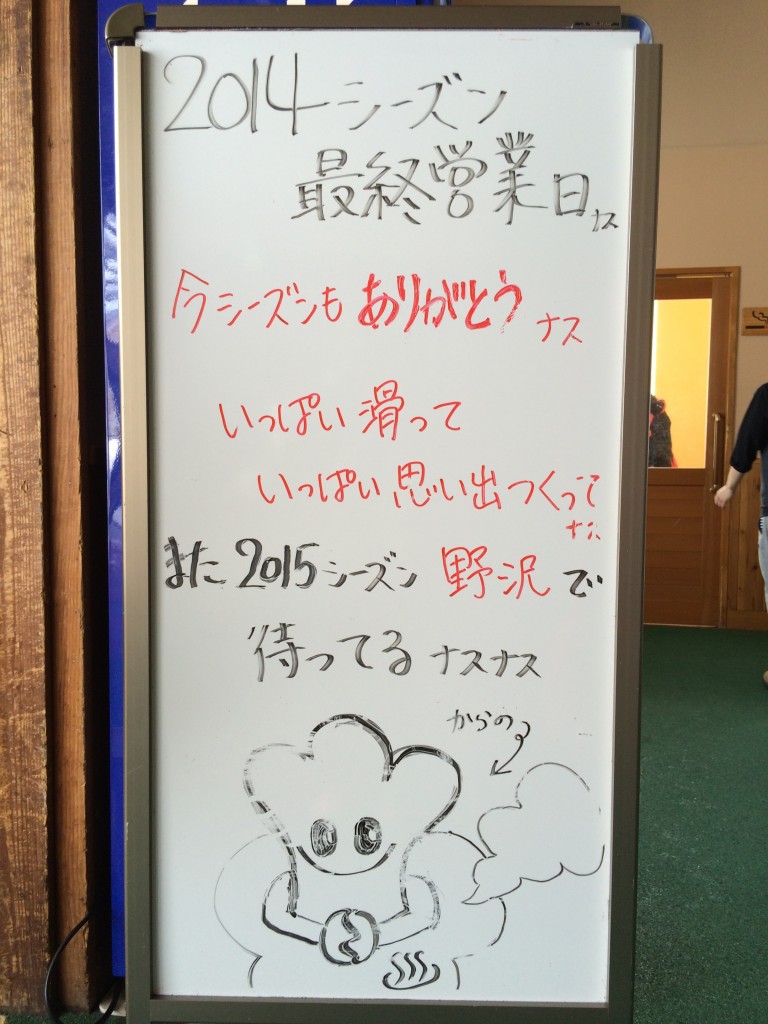 2014シーズン
最終営業日ナス
今シーズンも ありがとう ナス
いっぱい滑って
いっぱい思い出つくって
ナス
また2015シーズン 野沢で
待ってる ナスナス
からの